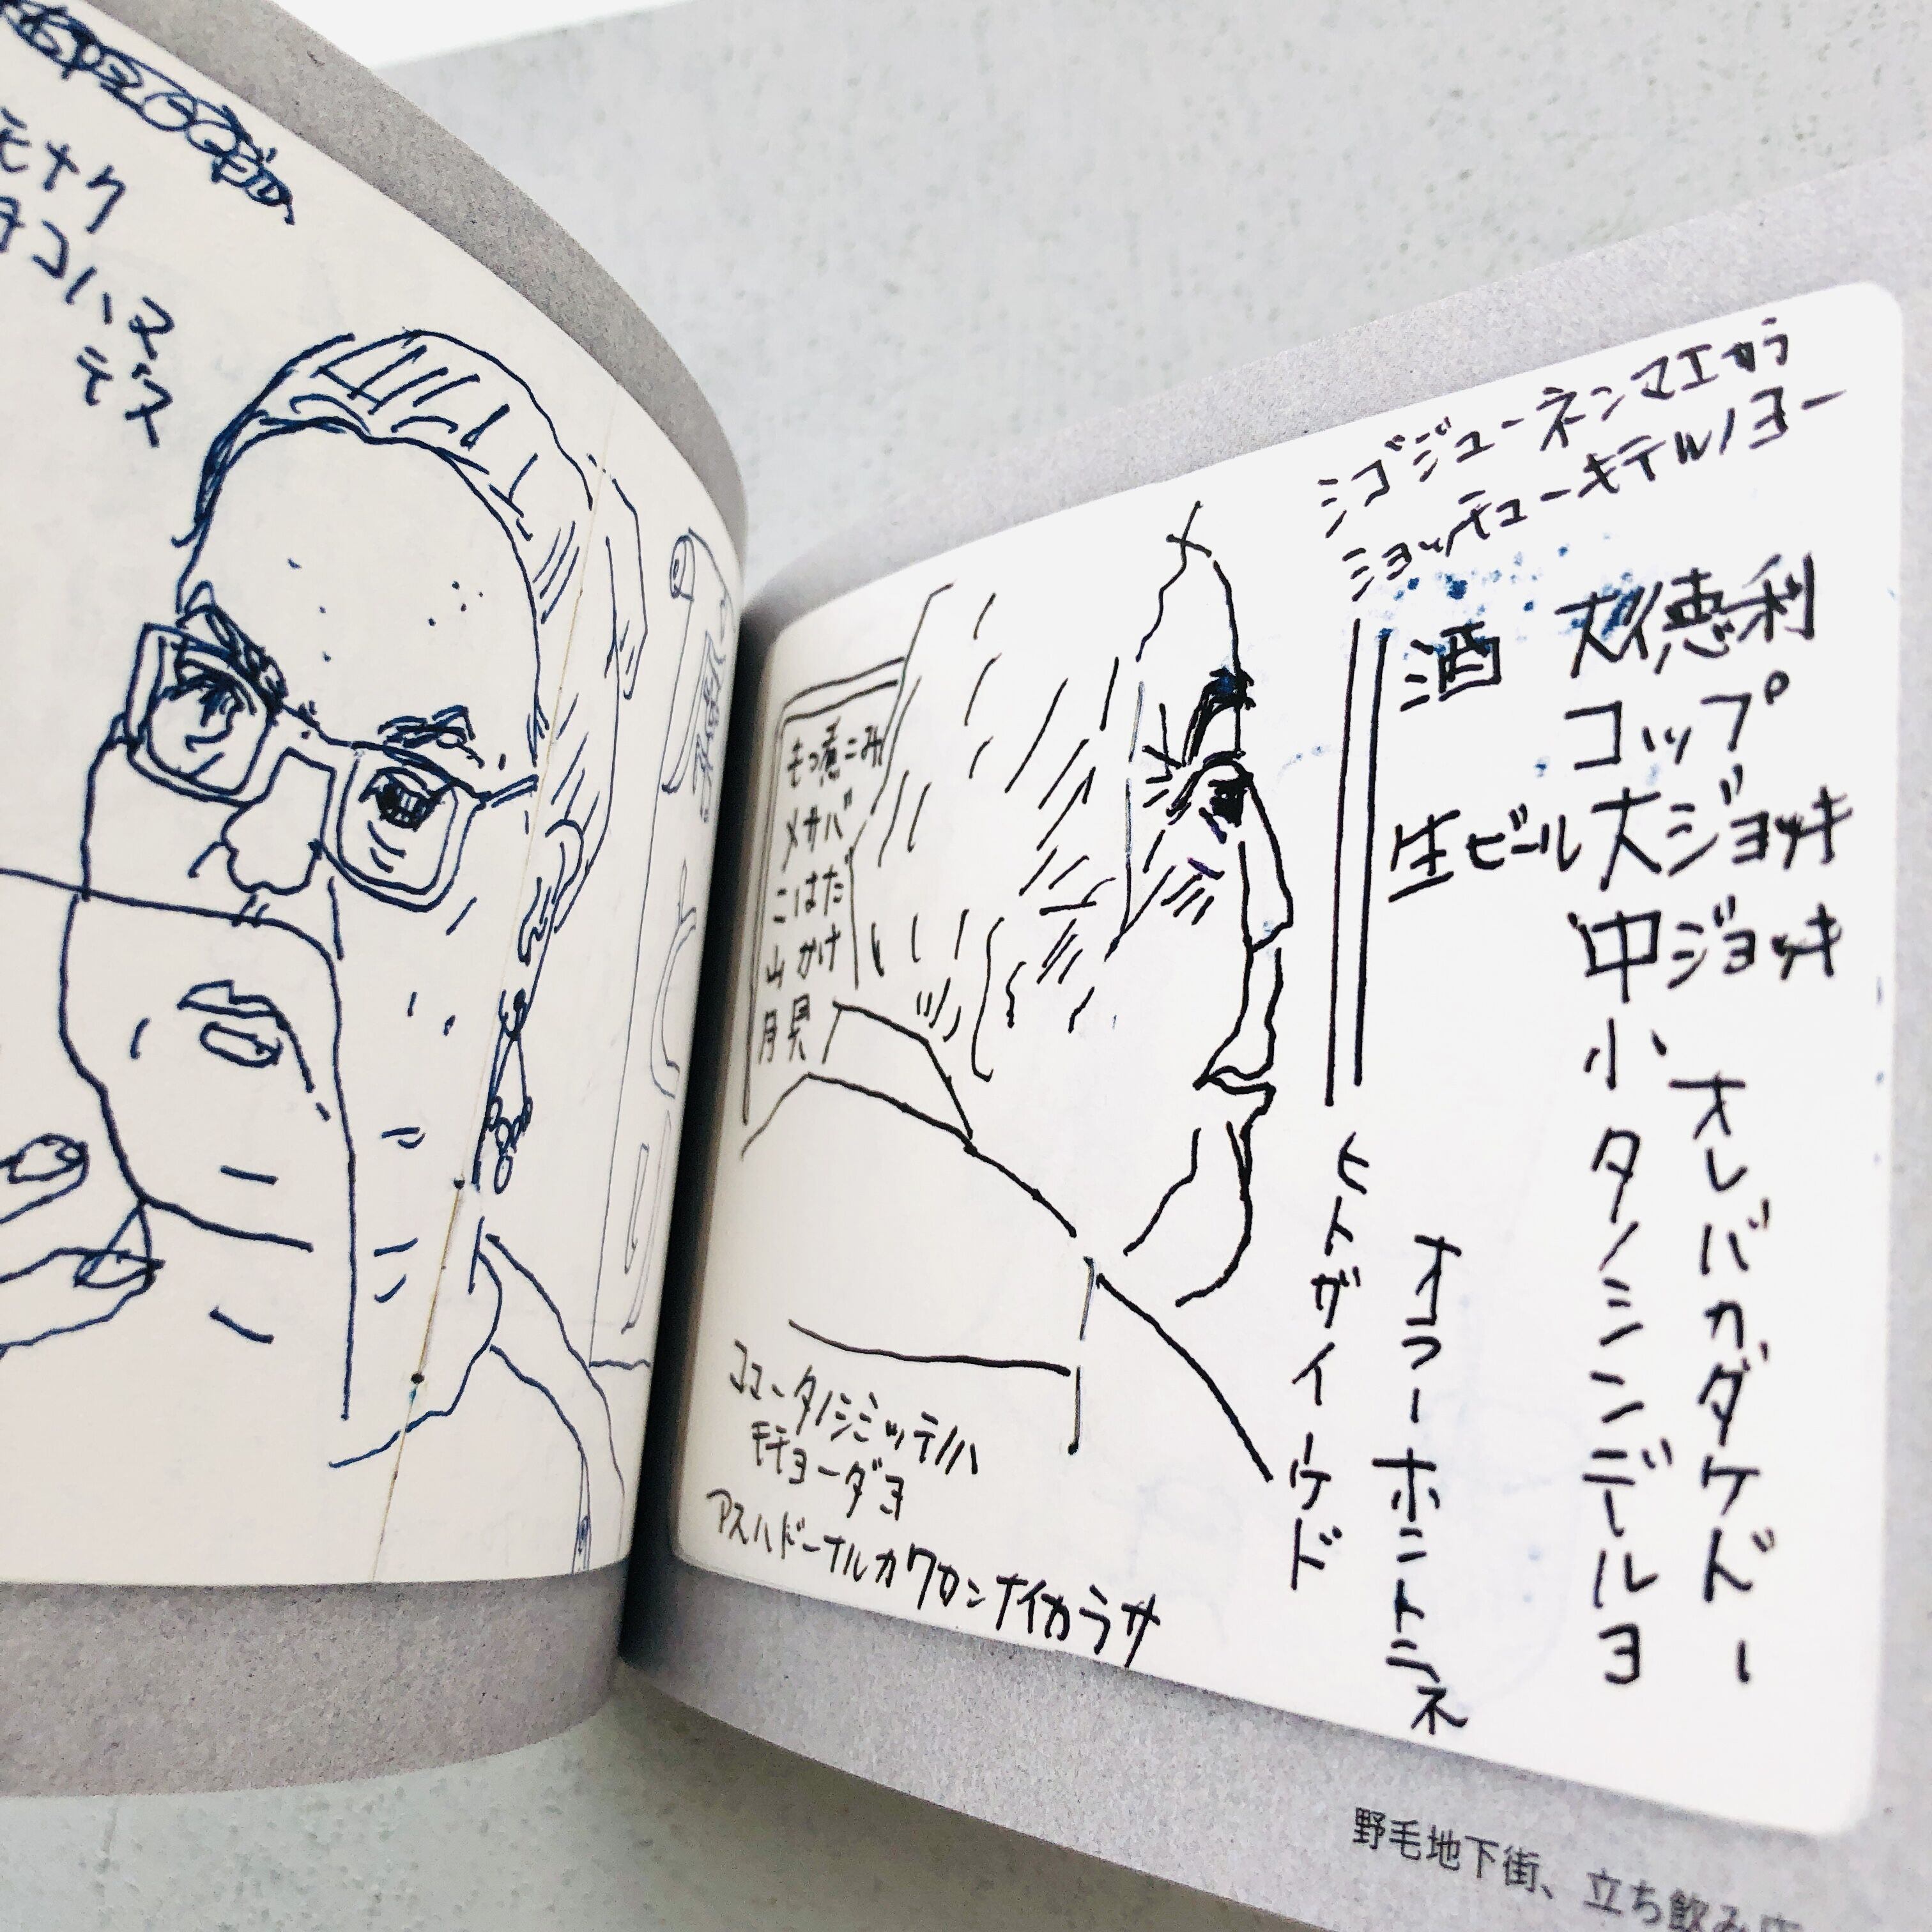 モナク
タコハヌ
デス
シゴジューネンマエカラ
ショッチューキテルノヨー
酒 大徳利
コップ
生ビール 大ジョッキ
中ジョッキ
小
オレバカダケドー
タノシンデールヨ
オコラーホントニネ
ヒトガイーケド
もつ煮こみ
メサバ
こはだ
山かけ
月見
ココータノシミッテノハ
モチョーダヨ
アスハドーナルカワカンナイカラサ
野毛地下街、立ち飲み